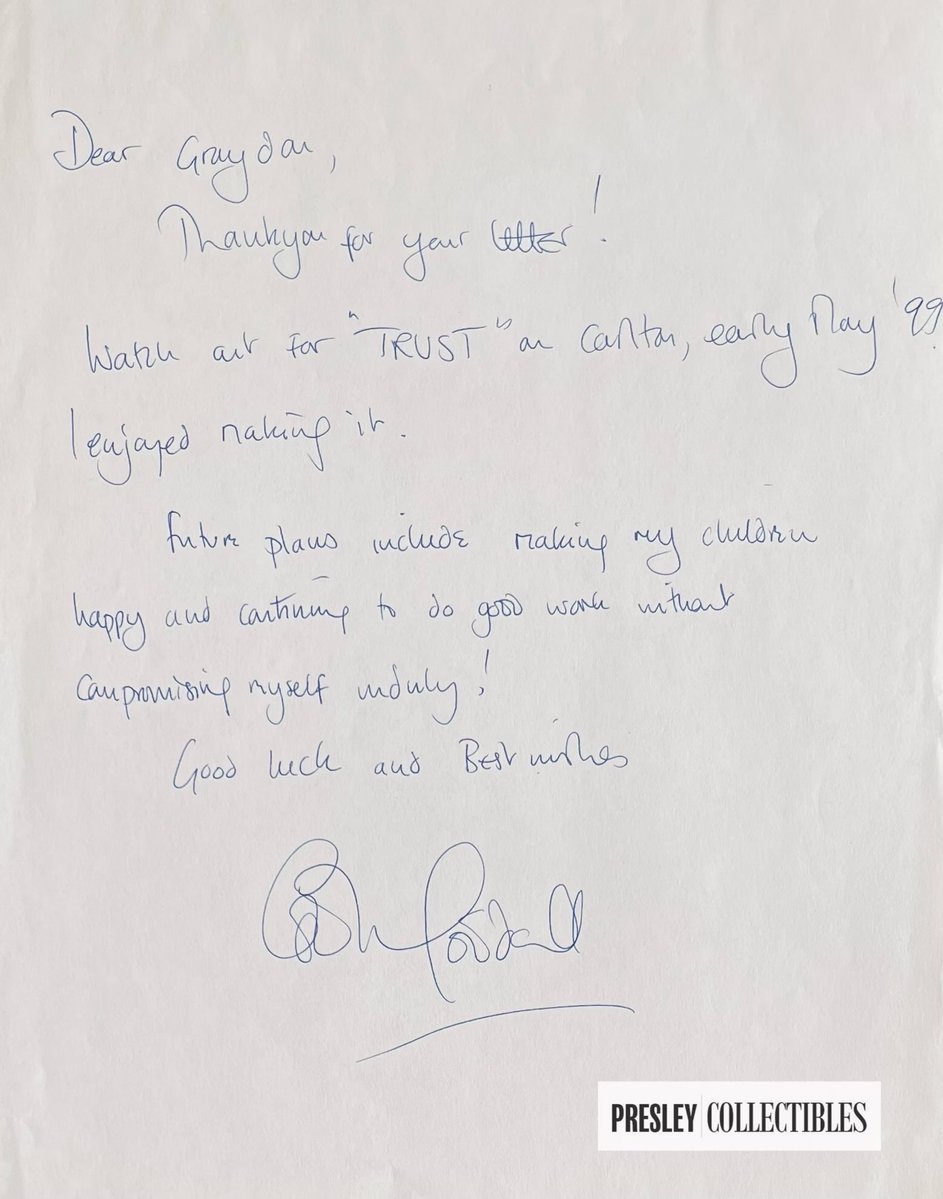 Dear Graydon,
Thankyou for your letter!
Watch out for "TRUST" on Carlton, early May '99.
I enjoyed making it.
Future plans include making my children
happy and continuing to do good work without
compromising myself unduly!
Good luck and Best wishes
PRESLEY COLLECTIBLES